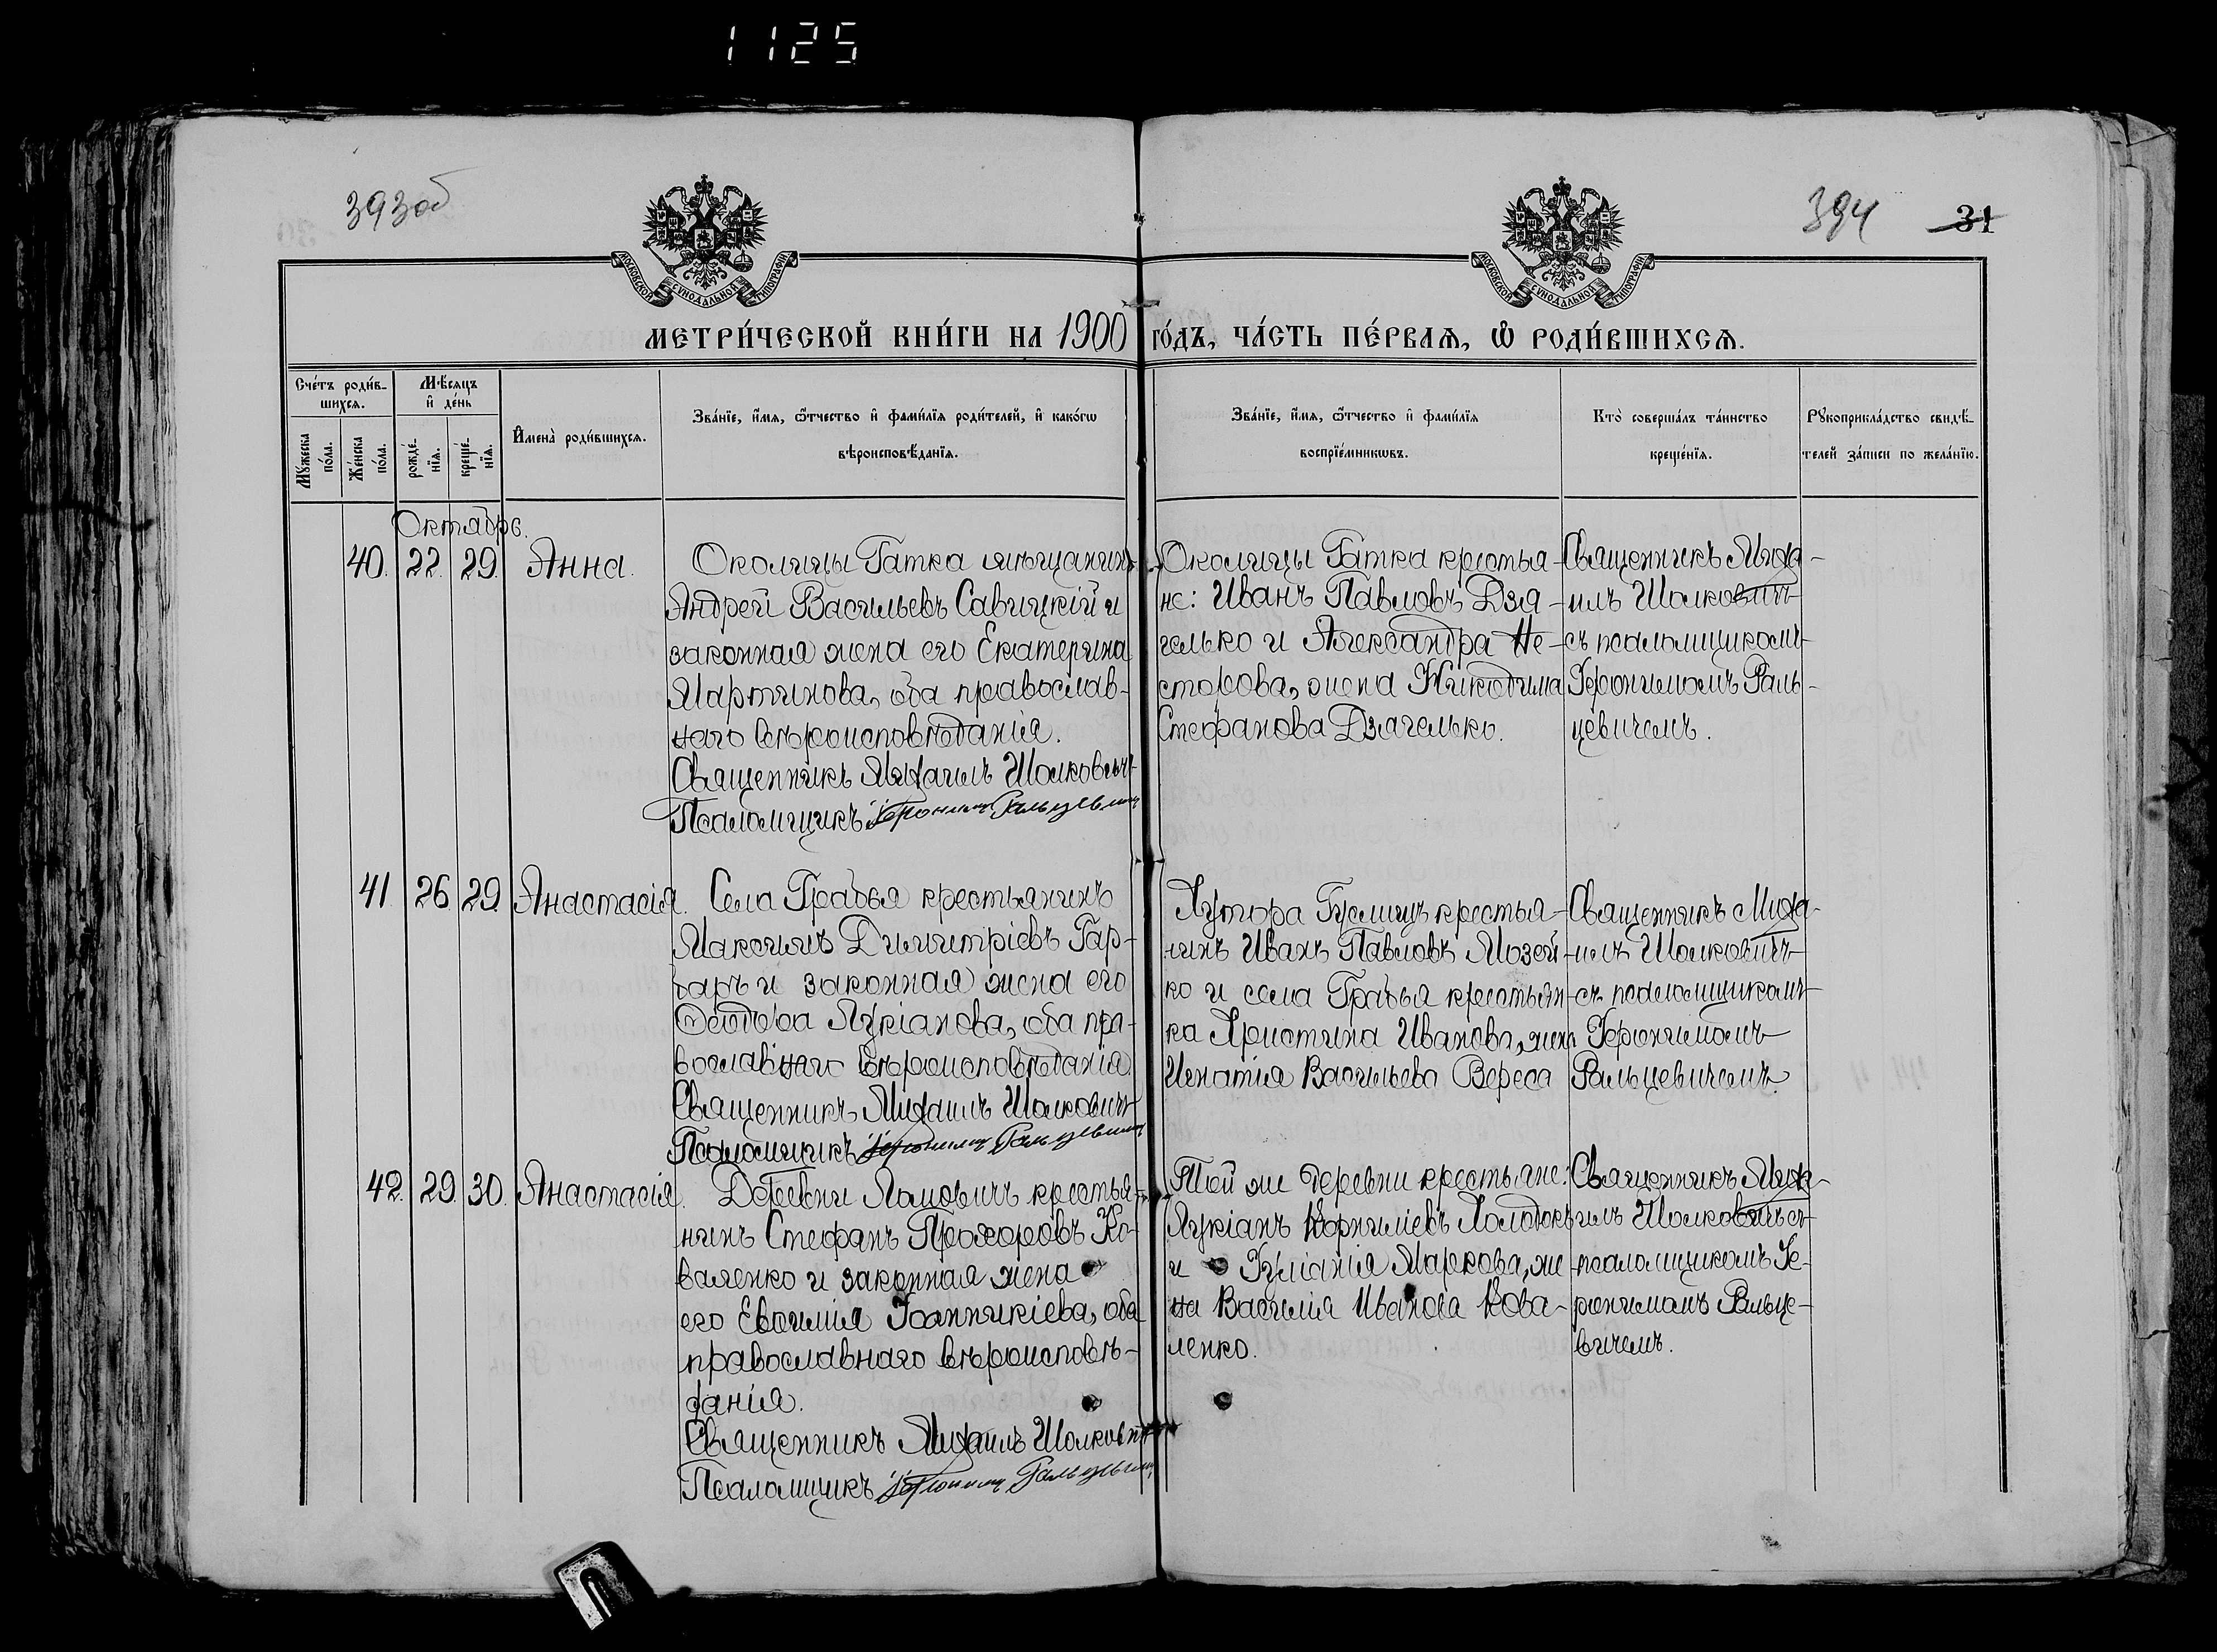 1125
393об
394 31
МОСКОВСКОЙ СѴНОДАЛЬНОЙ ТИПОГРАФІИ
МОСКОВСКОЙ СѴНОДАЛЬНОЙ ТИПОГРАФІИ
МЕТРИ́ЧЕСКОЙ КНИ́ГИ НА 1900 ГО́ДЪ, ЧА́СТЬ ПЕ́РВАѦ, Ѽ РОДИ́ВШИХСѦ.
Сче́тъ роди́в-
шихся.
Мꙋ́жеска
по́ла.
Же́нска
по́ла.
Мѣ́сяцъ
и҆ де́нь
рожде́-
нїя.
креще́-
нїя.
И҆мена̀ роди́вшихся.
Зва́нїе, и҆́мя, ѻ҆́тчество и҆ фами́лїя роди́телей, и҆ како́гѡ
вѣроисповѣ́данїя.
Зва́нїе, и҆́мя, ѻ҆́тчество и҆ фами́лїя
воспрїе́мникѡвъ.
Кто̀ соверша́лъ та́инство
креще́нїя.
Рꙋкоприкла́дство свидѣ́-
телей за́писи по жела́нїю.
Октябрь.
40. 22. 29. Анна.
Околицы Гатка мѣщанинъ
Андрей Васильевъ Савицкій и
законная жена его Екатерина
Мартинова, оба православ-
наго вѣроисповѣданія.
Священникъ Михаилъ Шолковичъ
Псаломщикъ Іеронимъ Гальцевичъ
Околицы Гатка крестья-
не: Иванъ Павловъ Дзя-
гелько и Александра Не-
сторова, жена Никодима
Стефанова Дзягелько.
Священникъ Миха-
илъ Шолковичъ
съ псаломщикомъ
Іеронимомъ Галь-
цевичемъ.
41. 26. 29. Анастасія.
Села Грабья крестьянинъ
Максимъ Димитріевъ Гар-
баръ и законная жена его
Ѳеодора Лукіанова, оба пра-
вославнаго вѣроисповѣданія.
Священникъ Михаилъ Шолковичъ
Псаломщикъ Іеронимъ Гальцевичъ
Хутора Гуслищъ крестья-
нинъ Иванъ Павловъ Мозей-
ко и села Грабья крестьян-
ка Христина Иванова, жена
Игнатія Васильева Вереса
Священникъ Миха-
илъ Шолковичъ
съ псаломщикомъ
Іеронимомъ
Гальцевичемъ
42. 29. 30. Анастасія.
Деревни Ломовичъ крестья-
нинъ Стефанъ Прохоровъ Ко-
валенко и законная жена
его Евфимія Іоанникіева, оба
православнаго вѣроисповѣ-
данія.
Священникъ Михаилъ Шолковичъ
Псаломщикъ Іеронимъ Гальцевичъ
Той же деревни крестьяне:
Лукіанъ Корниліевъ Холодокъ
и Іуліанія Маркова, же-
на Василія Иванова Кова-
ленко.
Священникъ Миха-
илъ Шолковичъ съ
псаломщикомъ Іе-
ронимомъ Гальце-
вичемъ.